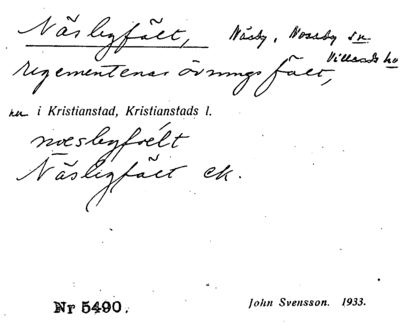 Näsbyfält, Näsby, Nosaby sn
Villands hd
regementenas övningsfält,
nu i Kristianstad, Kristianstads l.
næsbyfælt
Näsbyfält ek.
Nr 5490.
John Svensson. 1933.